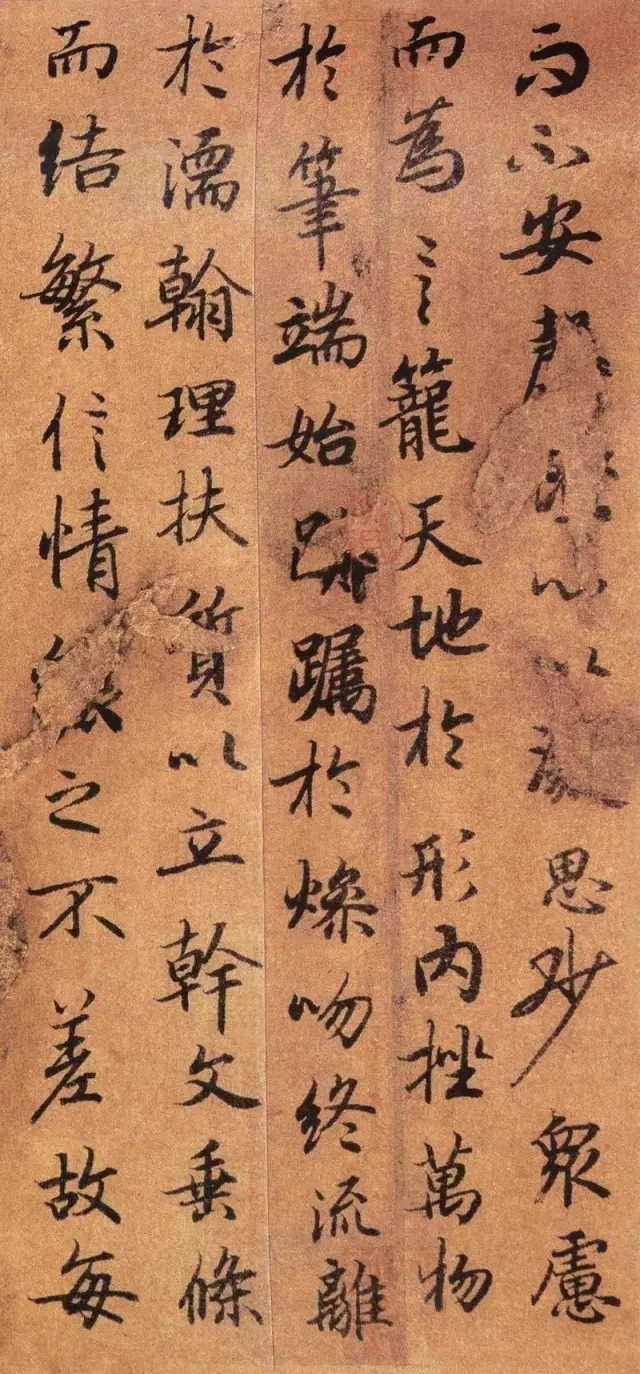 而不安心以思眇衆慮
而為言籠天地於形内挫萬物
於筆端始躑躅於燥吻終流離
於濡翰理扶質以立幹文垂條
而結繁信情之不差故每